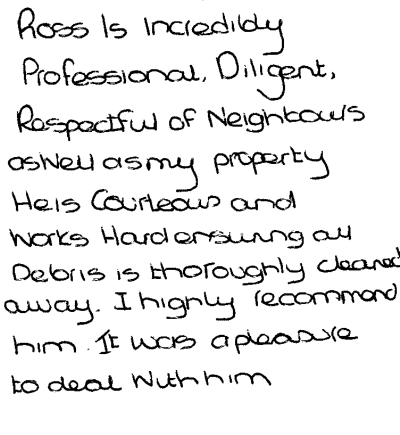 Ross Is Incredibly
Professional, Diligent,
Respectful of Neighbours
aswell as my property
He is Courteous and
works Hard ensuring all
Debris is thoroughly cleaned
away. I highly recommend
him. It was a pleasure
to deal with him